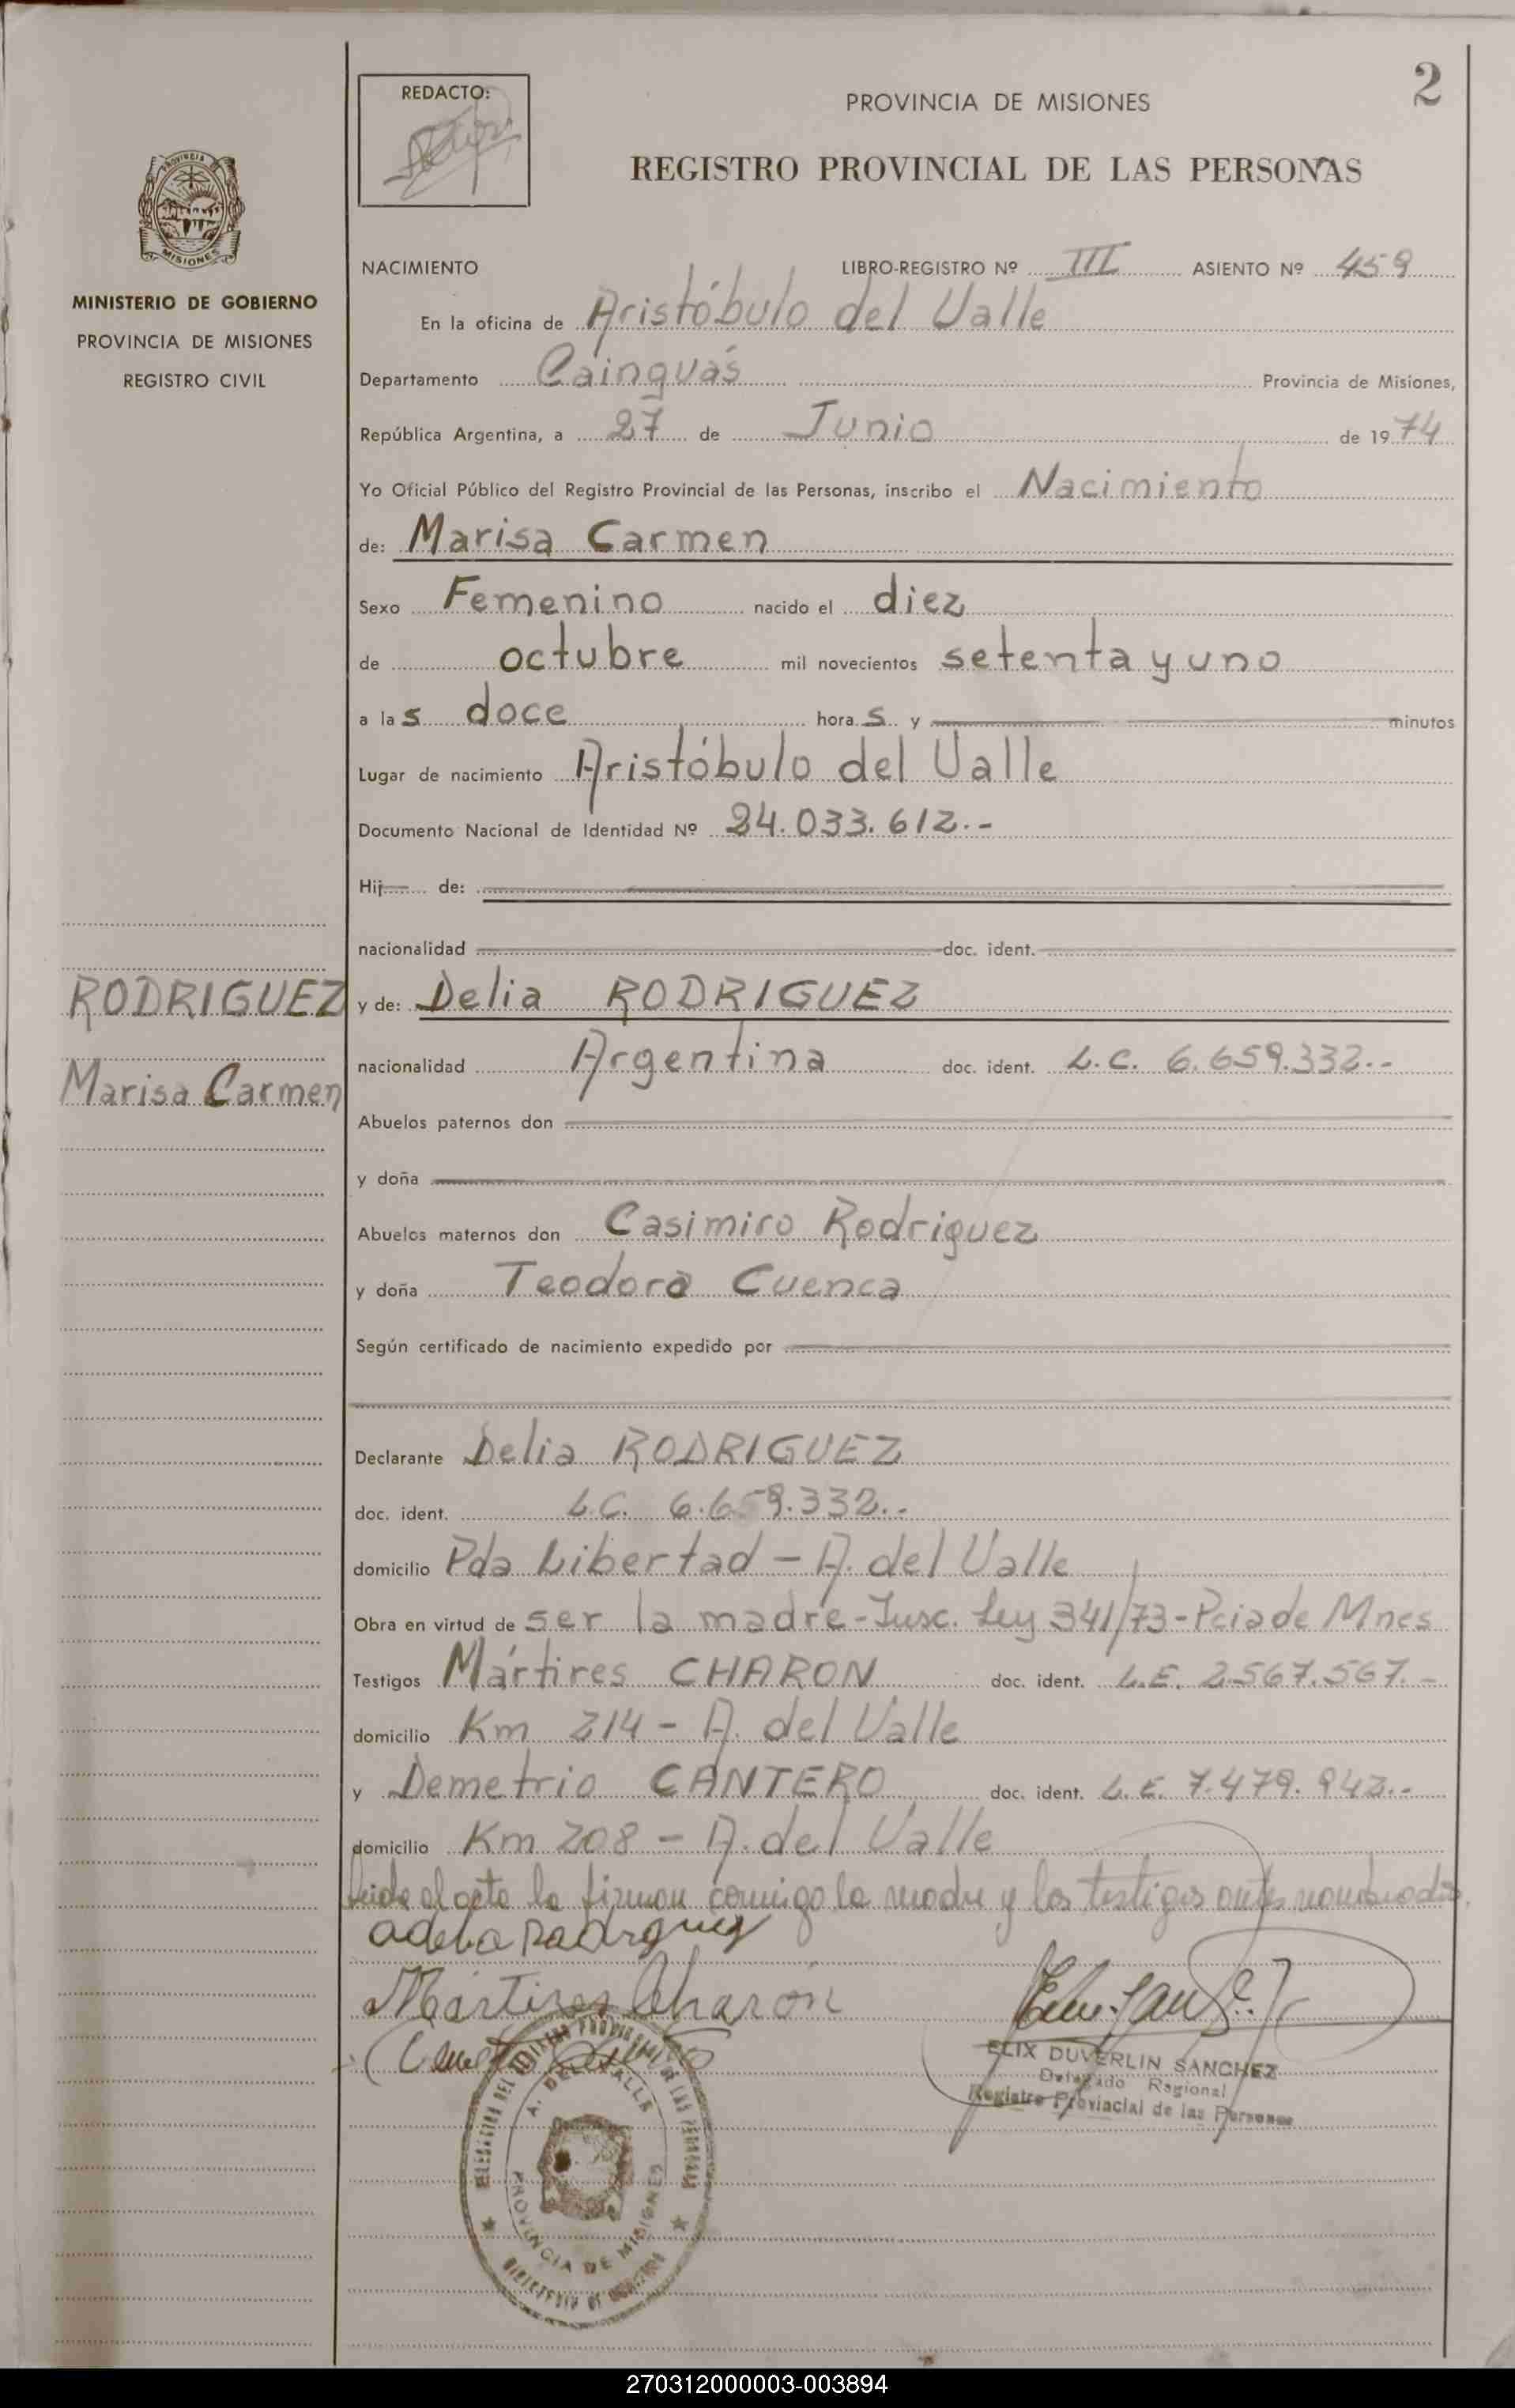 2
REDACTO:
PROVINCIA DE MISIONES
REGISTRO PROVINCIAL DE LAS PERSONAS
PROVINCIA
MISIONES
MINISTERIO DE GOBIERNO
PROVINCIA DE MISIONES
REGISTRO CIVIL
NACIMIENTO LIBRO-REGISTRO Nº III ASIENTO Nº 459
En la oficina de Aristóbulo del Valle
Departamento Cainguás Provincia de Misiones,
República Argentina, a 27 de Junio de 1974
Yo Oficial Público del Registro Provincial de las Personas, inscribo el Nacimiento
de: Marisa Carmen
Sexo Femenino nacido el diez
de octubre mil novecientos setenta y uno
a las doce horas y minutos
Lugar de nacimiento Aristóbulo del Valle
Documento Nacional de Identidad Nº 24.033.612.-
Hij de:
nacionalidad doc. ident.
RODRIGUEZ
Marisa Carmen
y de: Delia RODRIGUEZ
nacionalidad Argentina doc. ident. L.C. 6.659.332.-
Abuelos paternos don
y doña
Abuelos maternos don Casimiro Rodriguez
y doña Teodora Cuenca
Según certificado de nacimiento expedido por
Declarante Delia RODRIGUEZ
doc. ident. L.C. 6.659.332.-
domicilio Pda Libertad - A. del Valle
Obra en virtud de ser la madre-Insc. Ley 341/73-Pcia de Mnes
Testigos Mártires CHARON doc. ident. L.E. 2.567.567.-
domicilio Km 214 - A. del Valle
y Demetrio CANTERO doc. ident. L.E. 7.479.942.-
domicilio Km 208 - A. del Valle
Leida el acta la firman conmigo la madre y los testigos antes nombrados.
Mártires Charón
ELIX DUVERLIN SANCHEZ
Delegado Regional
Registro Provincial de las Personas
A. DEL VALLE
PROVINCIA DE MISIONES
270312000003-003894